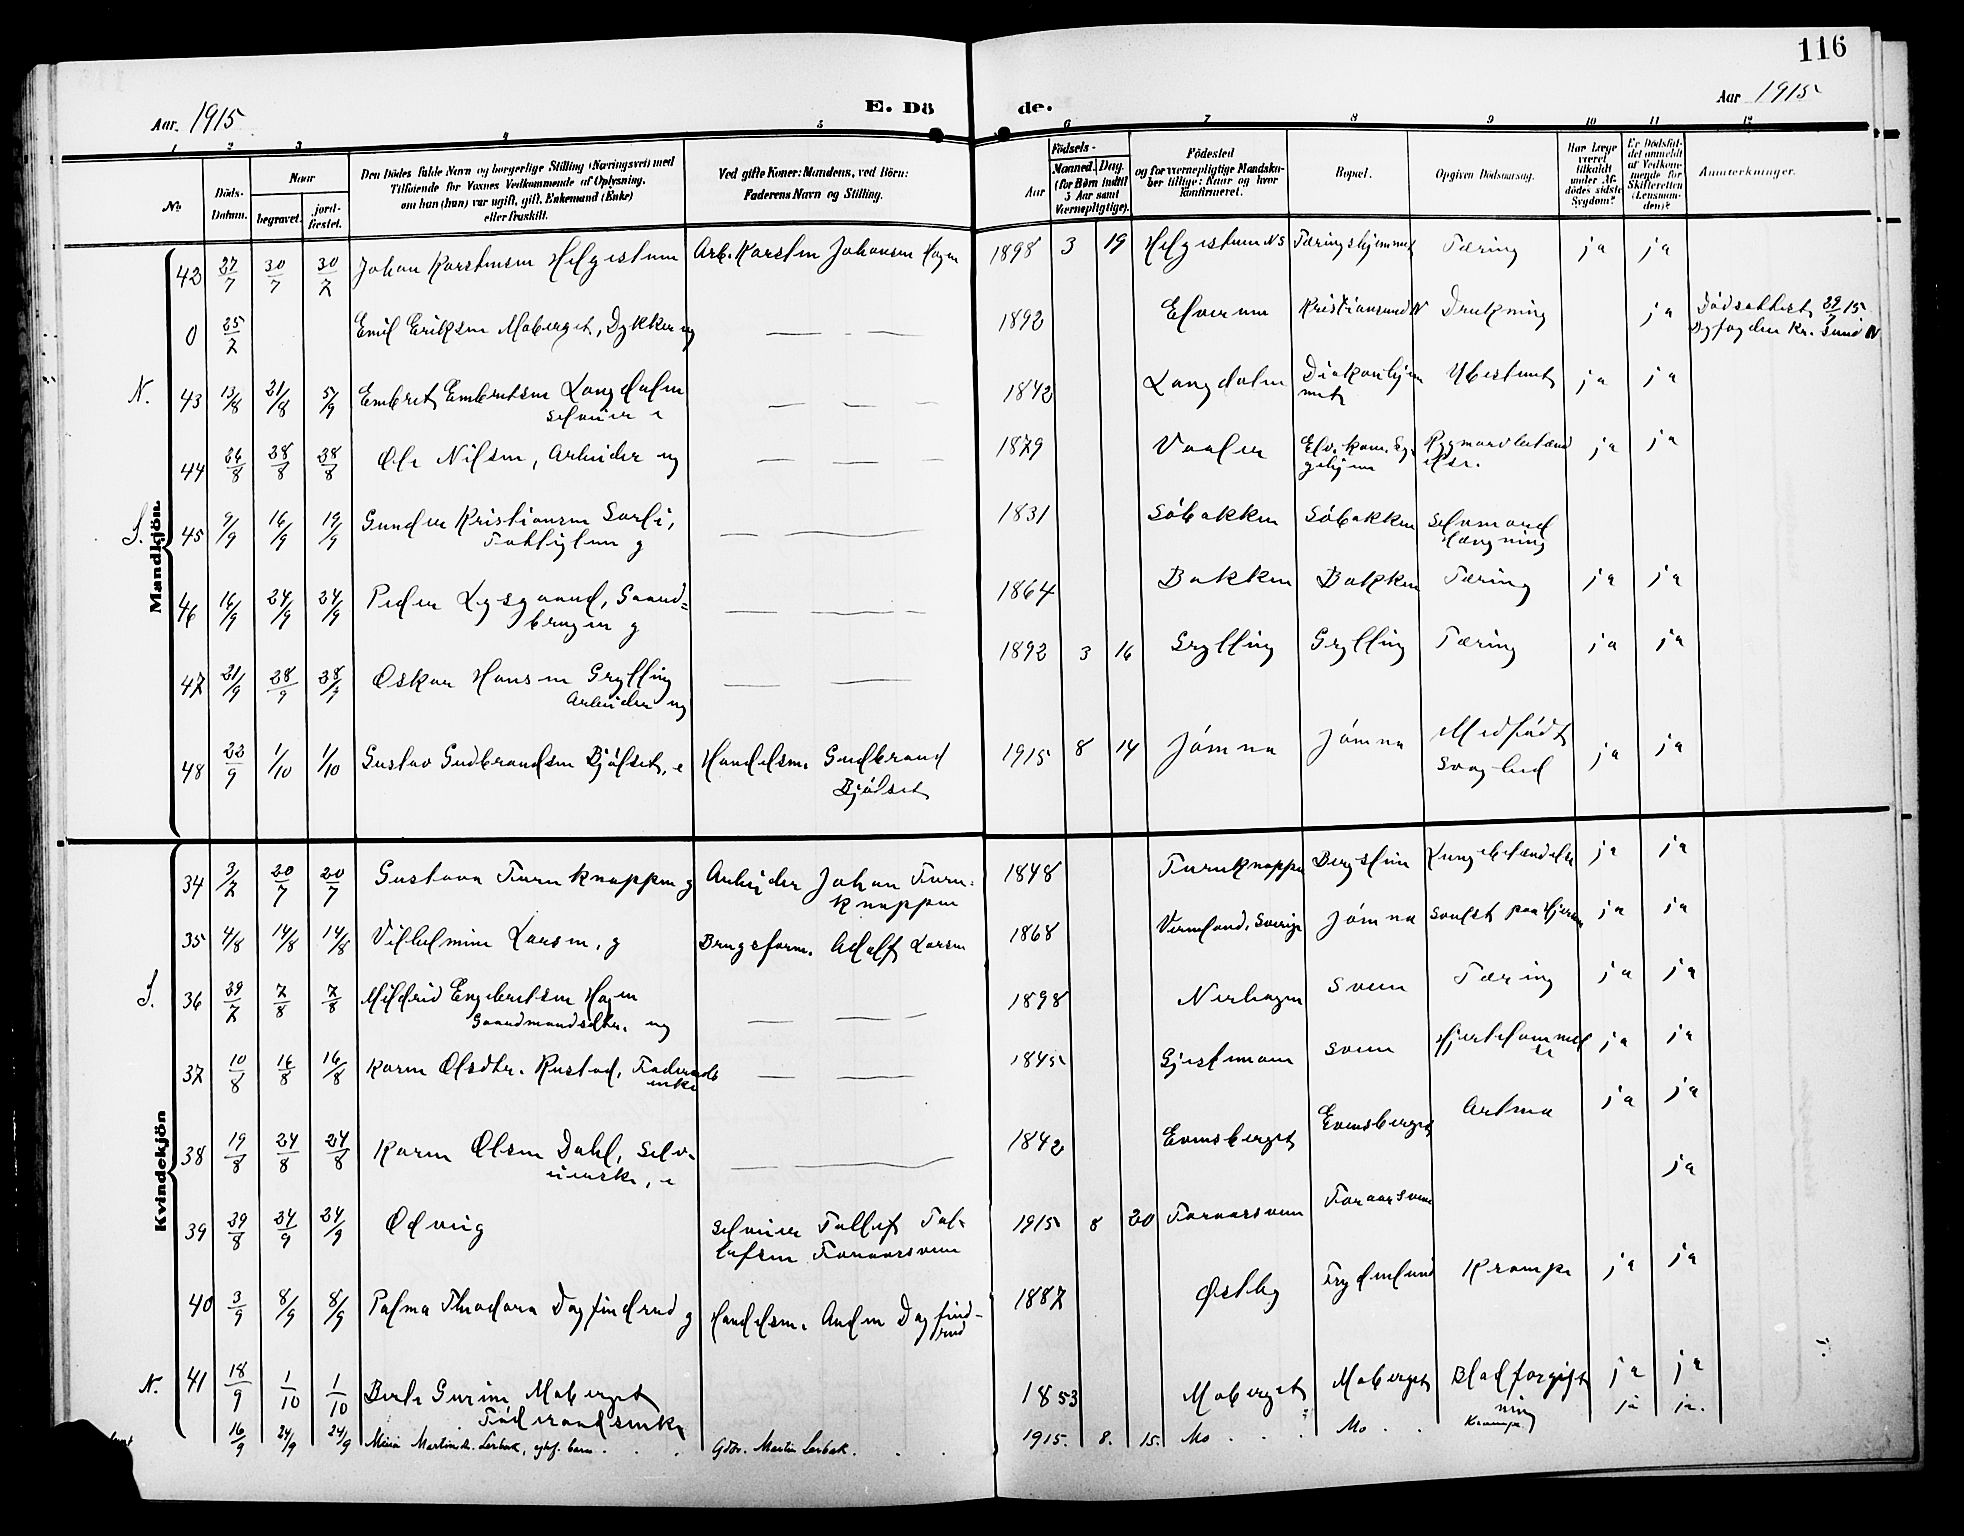 116
Aar. 1915
E. Dö
de.
Aar 1915
1 2 3 4 5 6 7 8 9 10 11 12
No
Döds-Datum.
Naar
begravet.
jord-fæstet.
Den Dödes fulde Navn og borgerlige Stilling (Næringsvei) med
Tilföiende for Voxnes Vedkommende af Oplysning,
om han (hun) var ugift, gift, Enkemand (Enke)
eller fraskilt.
Ved gifte Koner: Mandens, ved Börn:
Faderens Navn og Stilling.
Födsels-
Aar
Maaned. Dag.
(for Børn indtil
5 Aar samt
Værnepligtige).
Födested
og for værnepligtige Mandska-
ber tillige: Naar og hvor
konfirmeret.
Bopæl.
Opgiven Dödsaarsag.
Har Læge
været
tilkaldt
under Af-
dödes sidste
Sygdom?
Er Dödsfal-
det anmeldt
af Vedkom-
mende for
Skifteretten
(Lensman-
den)?
Anmerkninger.
Mandkjön.
42 27/7 30/7 30/7 Johan Karstensen Helgestuen Arb. Karsten Johansen Hagen 1898 3 19 Helgestuen NS Tæringshjemmet Tæring ja ja
0 25/7 Emil Eriksen Moberget, Dykker ug 1892 Elverum Kristiansund N Drukning ja Dödsattest 29/7 15
Byfogden Kr. sund N
N. 43 13/8 21/8 5/9 Embret Embretsen Langdalen
selveier e 1842 Langdalen Diakonhjem
met Ubestemt ja ja
44 26/8 28/8 28/8 Ole Nilsen, Arbeider ug 1879 Vaaler Elv. kom. Sy-
gehjem Rygmarvbetænd
else. ja ja
S. 45 9/9 16/9 19/9 Gunder Kristiansen Sorli,
Fattiglem g 1831 Söbakken Söbakken Selvmord
Hængning
46 16/9 24/9 24/9 Peder Lysgaard, Gaard=
bruger g 1864 Bakken Bakken Tæring ja ja
47 21/9 28/9 28/9 Oskar Hansen Grylling
Arbeider ug 1892 3 16 Grylling Grylling Tæring ja ja
48 22/9 1/10 1/10 Gustav Gudbrandsen Bjölset, e Handelsm. Gudbrand
Bjölset 1915 8 14 Jömna Jömna Medfödt
Svaghed ja ja
Kvindekjön
34 3/7 20/7 20/7 Gustava Furuknappen g Arbeider Johan Furu-
knappen 1848 Furuknappen Bergstien Lungebetændelse ja ja
35 4/8 14/8 14/8 Vilhelmine Larsen, g Brugsform. Adolf Larsen 1868 Vermland, Sverige Jömna Svulst paa Hjernen ja ja
S. 36 29/7 7/8 7/8 Mildrid Engebretsen Hagen
Gaardmandsdtr. ug 1898 Nerhagen Sveen Tæring ja ja
37 10/8 16/8 16/8 Karen Olsdtr. Rustad, Föderaads
enke 1845 Gjestmoen Sveen Hjertelammel
se ja ja
38 19/8 24/8 24/8 Karen Olsen Dahl, Selv-
eierske, e 1842 Evensberget Evensberget Astma ja ja
39 29/8 24/9 24/9 Odveig Selveier Tollef Tol-
lefsen Foraarsveen 1915 8 20 Foraarsveen Foraarsveen ja
40 3/9 8/9 8/9 Palma Theodora Dagfindrud g Handelsm. Anden Dagfind-
rud 1887 Østby Frydenlund Krampe ja ja
N. 41 18/9 1/10 1/10 Berte Gurine Moberget
Föderaadsenke 1853 Moberget Moberget Blodforgift
ning ja ja
16/9 24/9 24/9 Mina Martinsdr. Lerbak, egtef. barn Gbr. Martin Lerbak. 1915. 8. 15. Mo Mo Krampe ja ja.